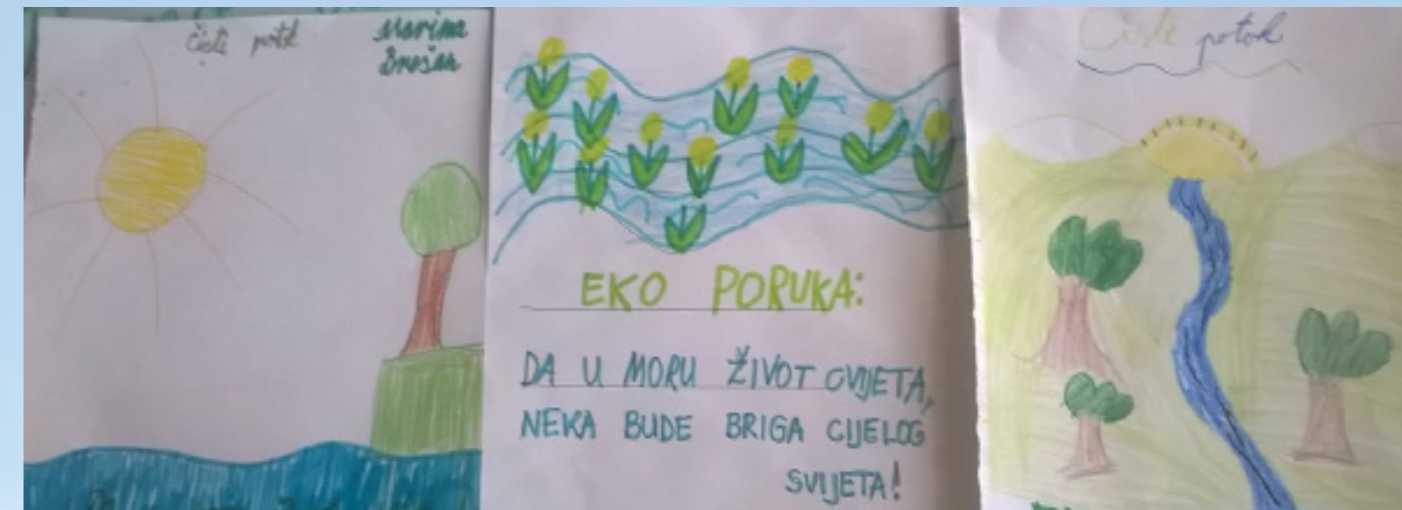 Čisti potok
Marina
EKO PORUKA:
DA U MORU ŽIVOT CVJETA,
NEKA BUDE BRIGA CIJELOG
SVIJETA!
Čisti potok